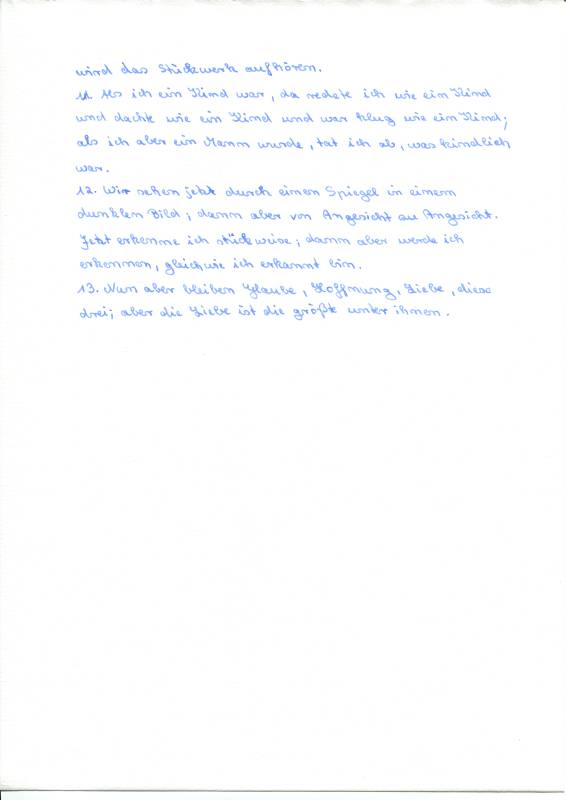 wird das Stückwerk aufhören.
11. Als ich ein Kind war, da redete ich wie ein Kind
und dachte wie ein Kind und war klug wie ein Kind;
als ich aber ein Mann wurde, tat ich ab, was kindlich
war.
12. Wir sehen jetzt durch einen Spiegel in einem
dunklen Bild; dann aber von Angesicht zu Angesicht.
Jetzt erkenne ich stückweise; dann aber werde ich
erkennen, gleichwie ich erkannt bin.
13. Nun aber bleiben Glaube, Hoffnung, Liebe, diese
drei; aber die Liebe ist die größte unter ihnen.